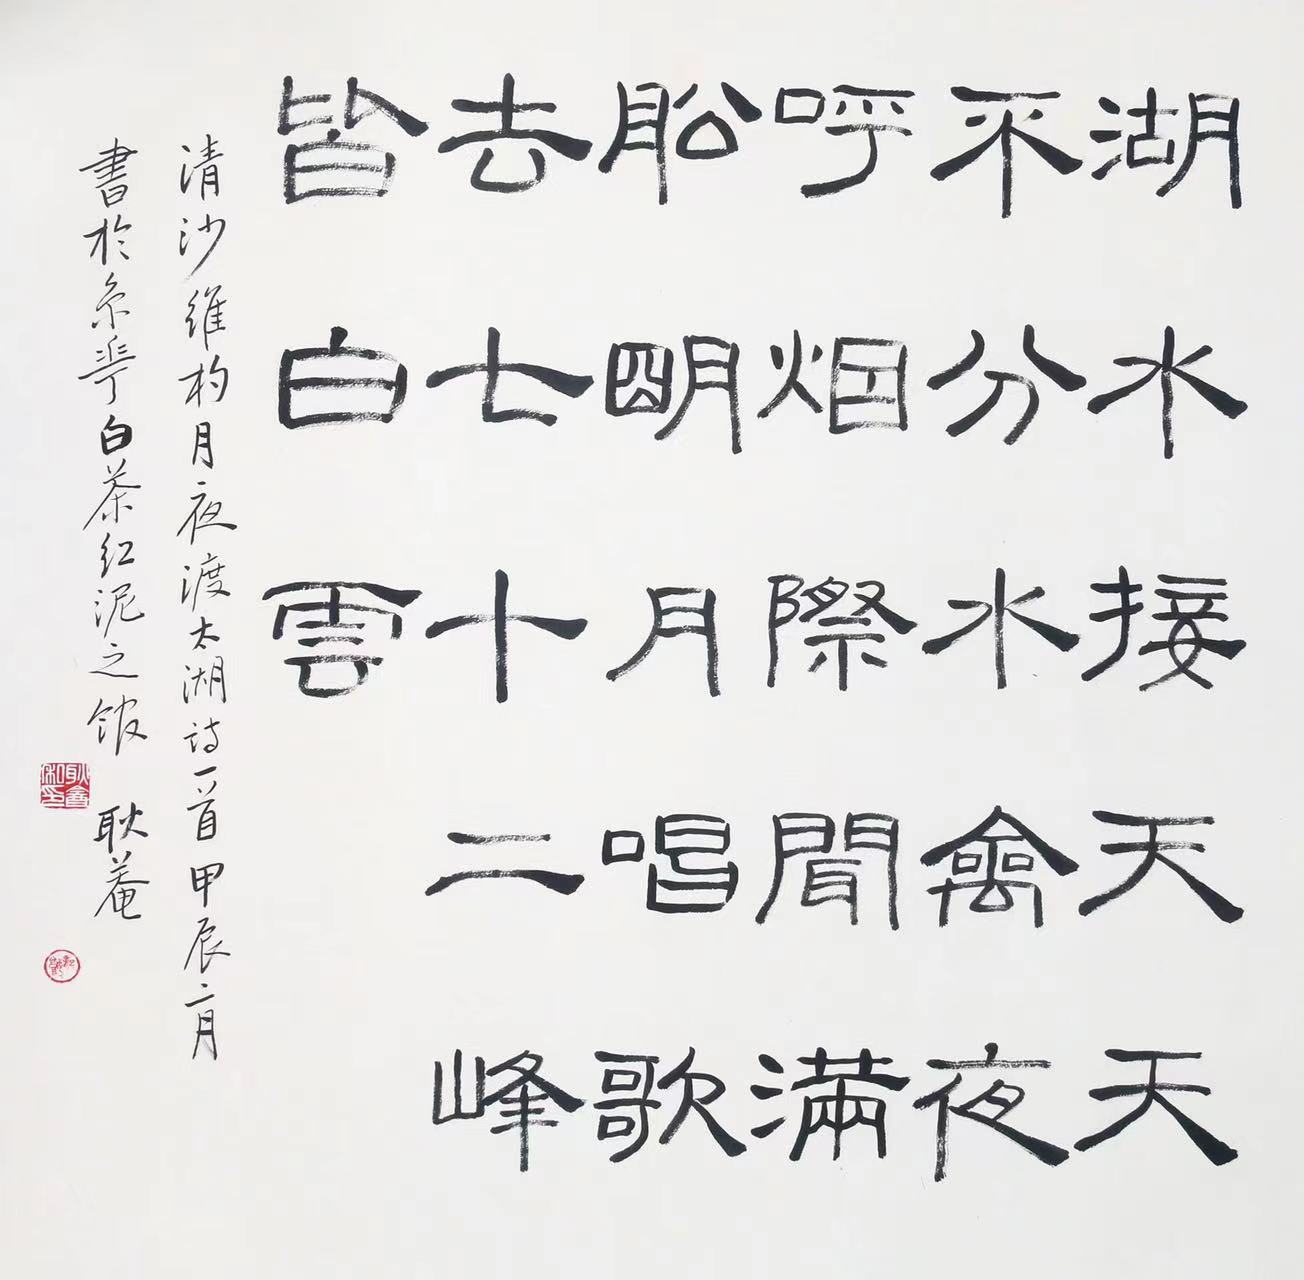 湖水接天天
不分水禽夜
呼烟際聞滿
舩明月唱歌
去七十二峰
皆白雲
清沙維杓月夜渡太湖诗一首甲辰二月
書於京華白茶红泥之館 耿菴